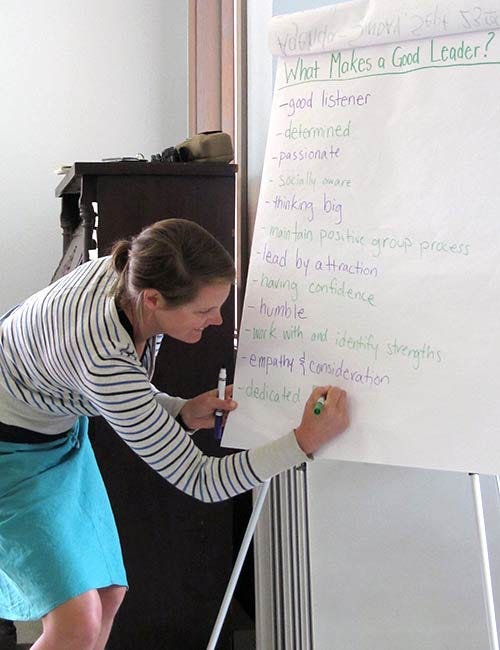 What Makes a Good Leader?
-good listener
-determined
-passionate
- socially aware
-thinking big
-maintain positive group process
-lead by attraction
-having confidence
-humble
-work with and identify strengths
-empathy & consideration
-dedicated